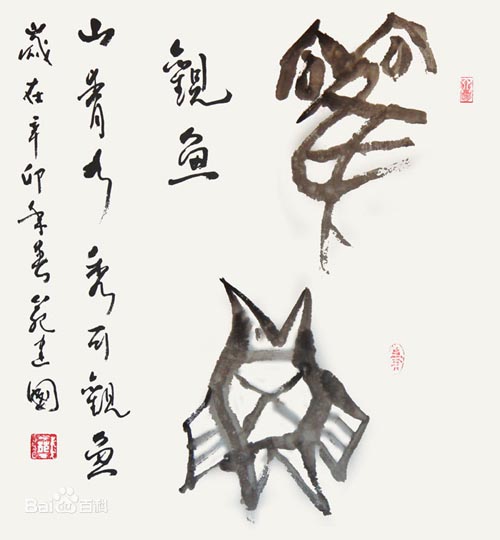 觀魚
觀魚
山青水秀可觀魚
歲在辛卯年春建國
Bai百科